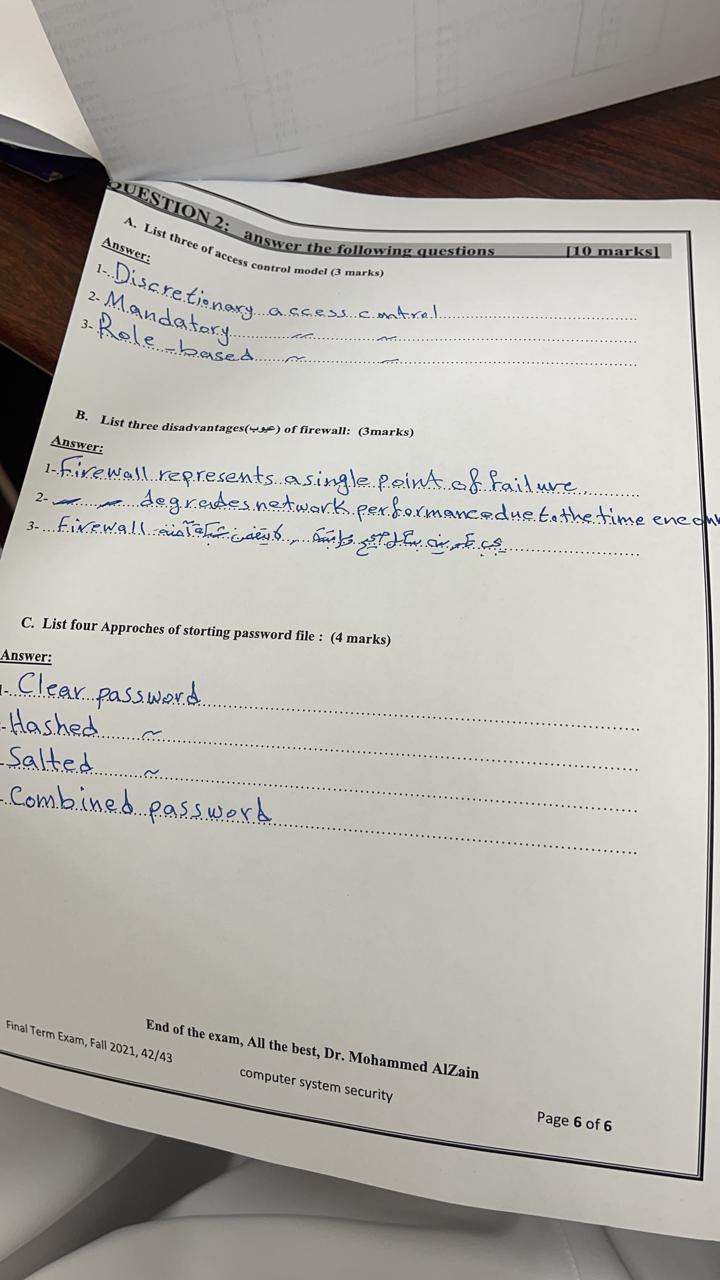 QUESTION 2: answer the following questions [10 marks]
A. List three of access control model (3 marks)
Answer:
1-Discretionary access control
2-Mandatory ~ ~
3-Role-based ~ ~
B. List three disadvantages(عيوب) of firewall: (3marks)
Answer:
1-Firewall represents a single point of failure
2- ~ ~ degrades network performance due to the time
3- Firewall
C. List four Approches of storting password file : (4 marks)
Answer:
Clear password
-Hashed ~
Salted ~
-Combined password
End of the exam, All the best, Dr. Mohammed AlZain
Final Term Exam, Fall 2021, 42/43
computer system security
Page 6 of 6